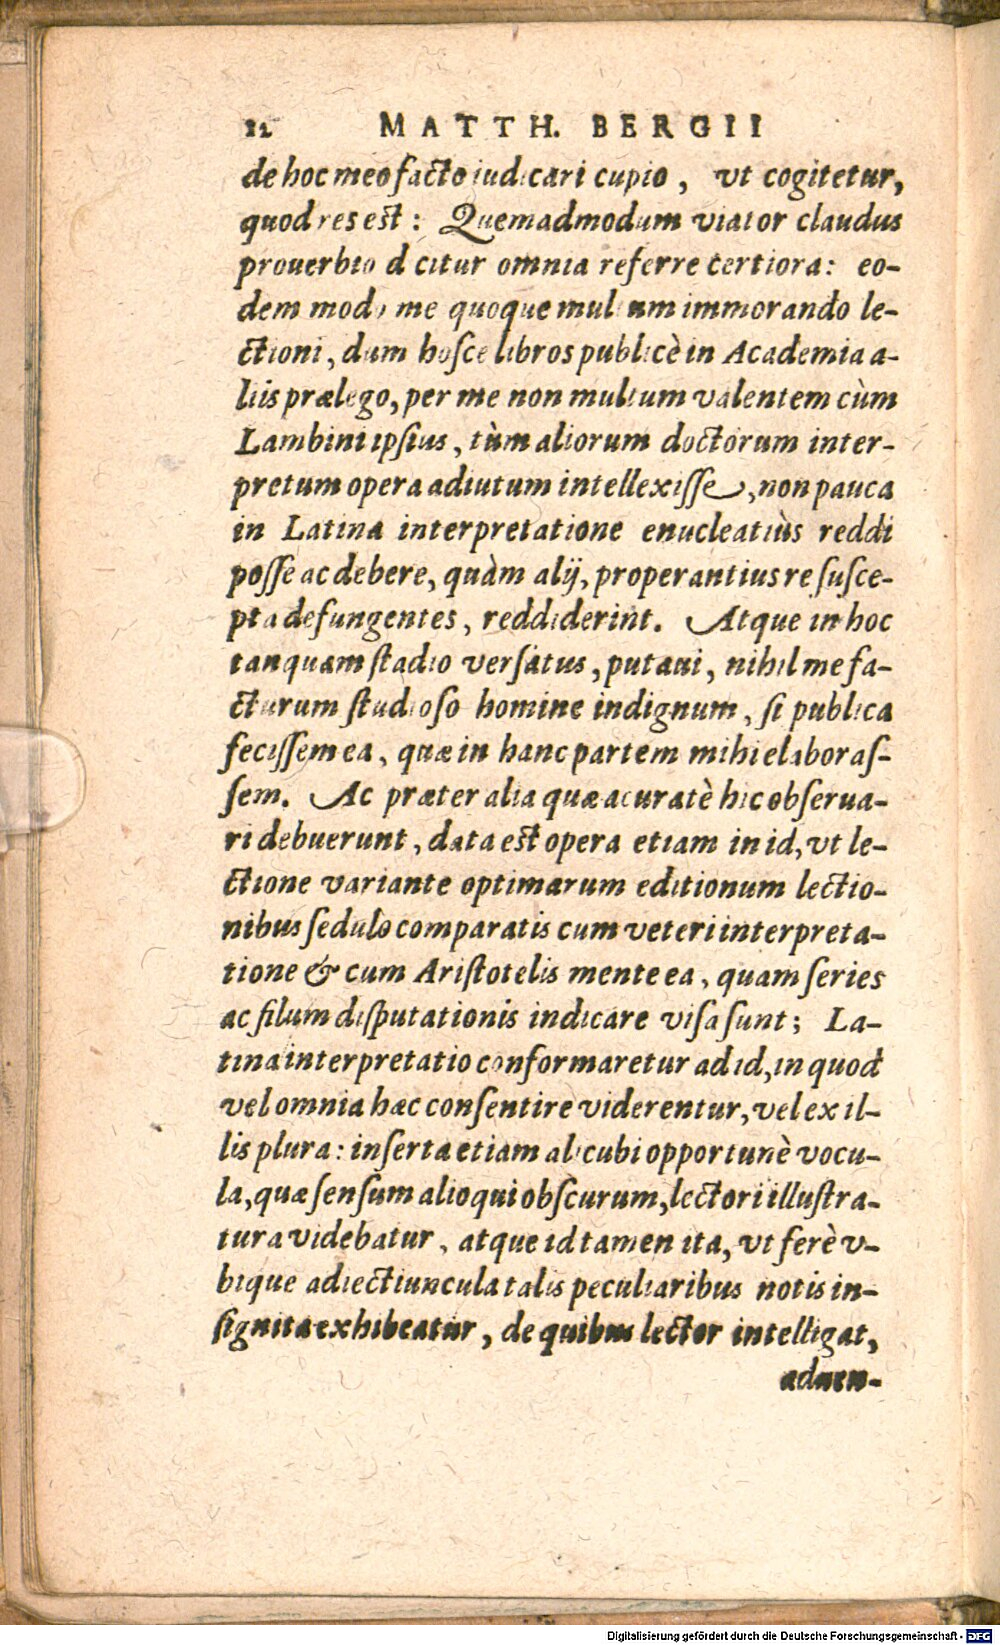 12 MATTH. BERGII
de hoc meo facto iudicari cupio, vt cogitetur,
quod res est: Quemadmodum viator claudus
prouerbio dicitur omnia referre certiora: eo-
dem modo me quoque multum immorando le-
ctioni, dum hosce libros publicè in Academia a-
liis prælego, per me non multum valentem cùm
Lambini ipsius, tùm aliorum doctorum inter-
pretum opera adiutum intellexisse, non pauca
in Latina interpretatione enucleatiùs reddi
posse ac debere, quàm alij, properantius re susce-
pta defungentes, reddiderint. Atque in hoc
tanquam stadio versatus, putaui, nihil me fa-
cturum studioso homine indignum, si publica
fecissem ea, quæ in hanc partem mihi elaboras-
sem. Ac præter alia quæ acuratè hic obserua-
ri debuerunt, data est opera etiam in id, vt le-
ctione variante optimarum editionum lectio-
nibus sedulo comparatis cum veteri interpreta-
tione & cum Aristotelis mente ea, quam series
ac filum disputationis indicare visa sunt; La-
tina interpretatio conformaretur ad id, in quod
vel omnia hæc consentire viderentur, vel ex il-
lis plura: inserta etiam alicubi opportunè vocu-
la, quæ sensum alioqui obscurum, lectori illustra-
tura videbatur, atque id tamen ita, vt ferè v-
bique adiectiuncula talis peculiaribus notis in-
signita exhibeatur, de quibus lector intelligat,
aduen-
Digitalisierung gefördert durch die Deutsche Forschungsgemeinschaft - DFG